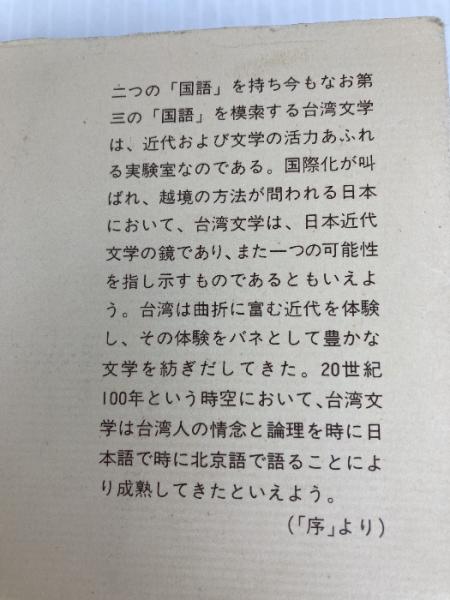 二つの「国語」を持ち今もなお第
三の「国語」を模索する台湾文学
は、近代および文学の活力あふれ
る実験室なのである。国際化が叫
ばれ、越境の方法が問われる日本
において、台湾文学は、日本近代
文学の鏡であり、また一つの可能性
を指し示すものであるともいえよ
う。台湾は曲折に富む近代を体験
し、その体験をバネとして豊かな
文学を紡ぎだしてきた。20世紀
100年という時空において、台湾文
学は台湾人の情念と論理を時に日
本語で時に北京語で語ることによ
り成熟してきたといえよう。
(「序」より)